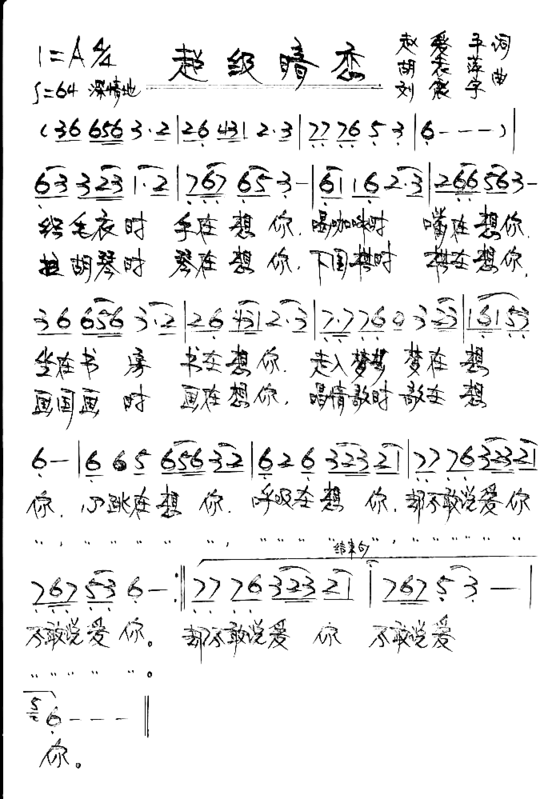 1=A 4/4 超级暗恋 赵爱平词
♩=64 深情地 胡志萍
刘震宇 曲
(36 656 3·2|26 431 2·3|77 76 5 3|6---)|
63 323 1·2|767 65 3-|611 6 2·3|266 563-
织毛衣时 手在想你,喝咖啡时 嘴在想你,
拉胡琴时 琴在想你,下围棋时 棋在想你,
36 656 3·2|26 431 2·3|7776 0 3 23|16153
坐在书房 书在想你,走入梦乡 梦在想
画国画时 画在想你,唱情歌时 歌在想
6-|6 6 5 656 32|6 2 6 323 21|77 76 323 21
你,心跳在想你,呼吸在想你,却不敢说爱你
结束句
767 53 6-:||77 76 323 21|767 5 3-|
不敢说爱你。却不敢说爱你 不敢说爱
5 6---||
你。